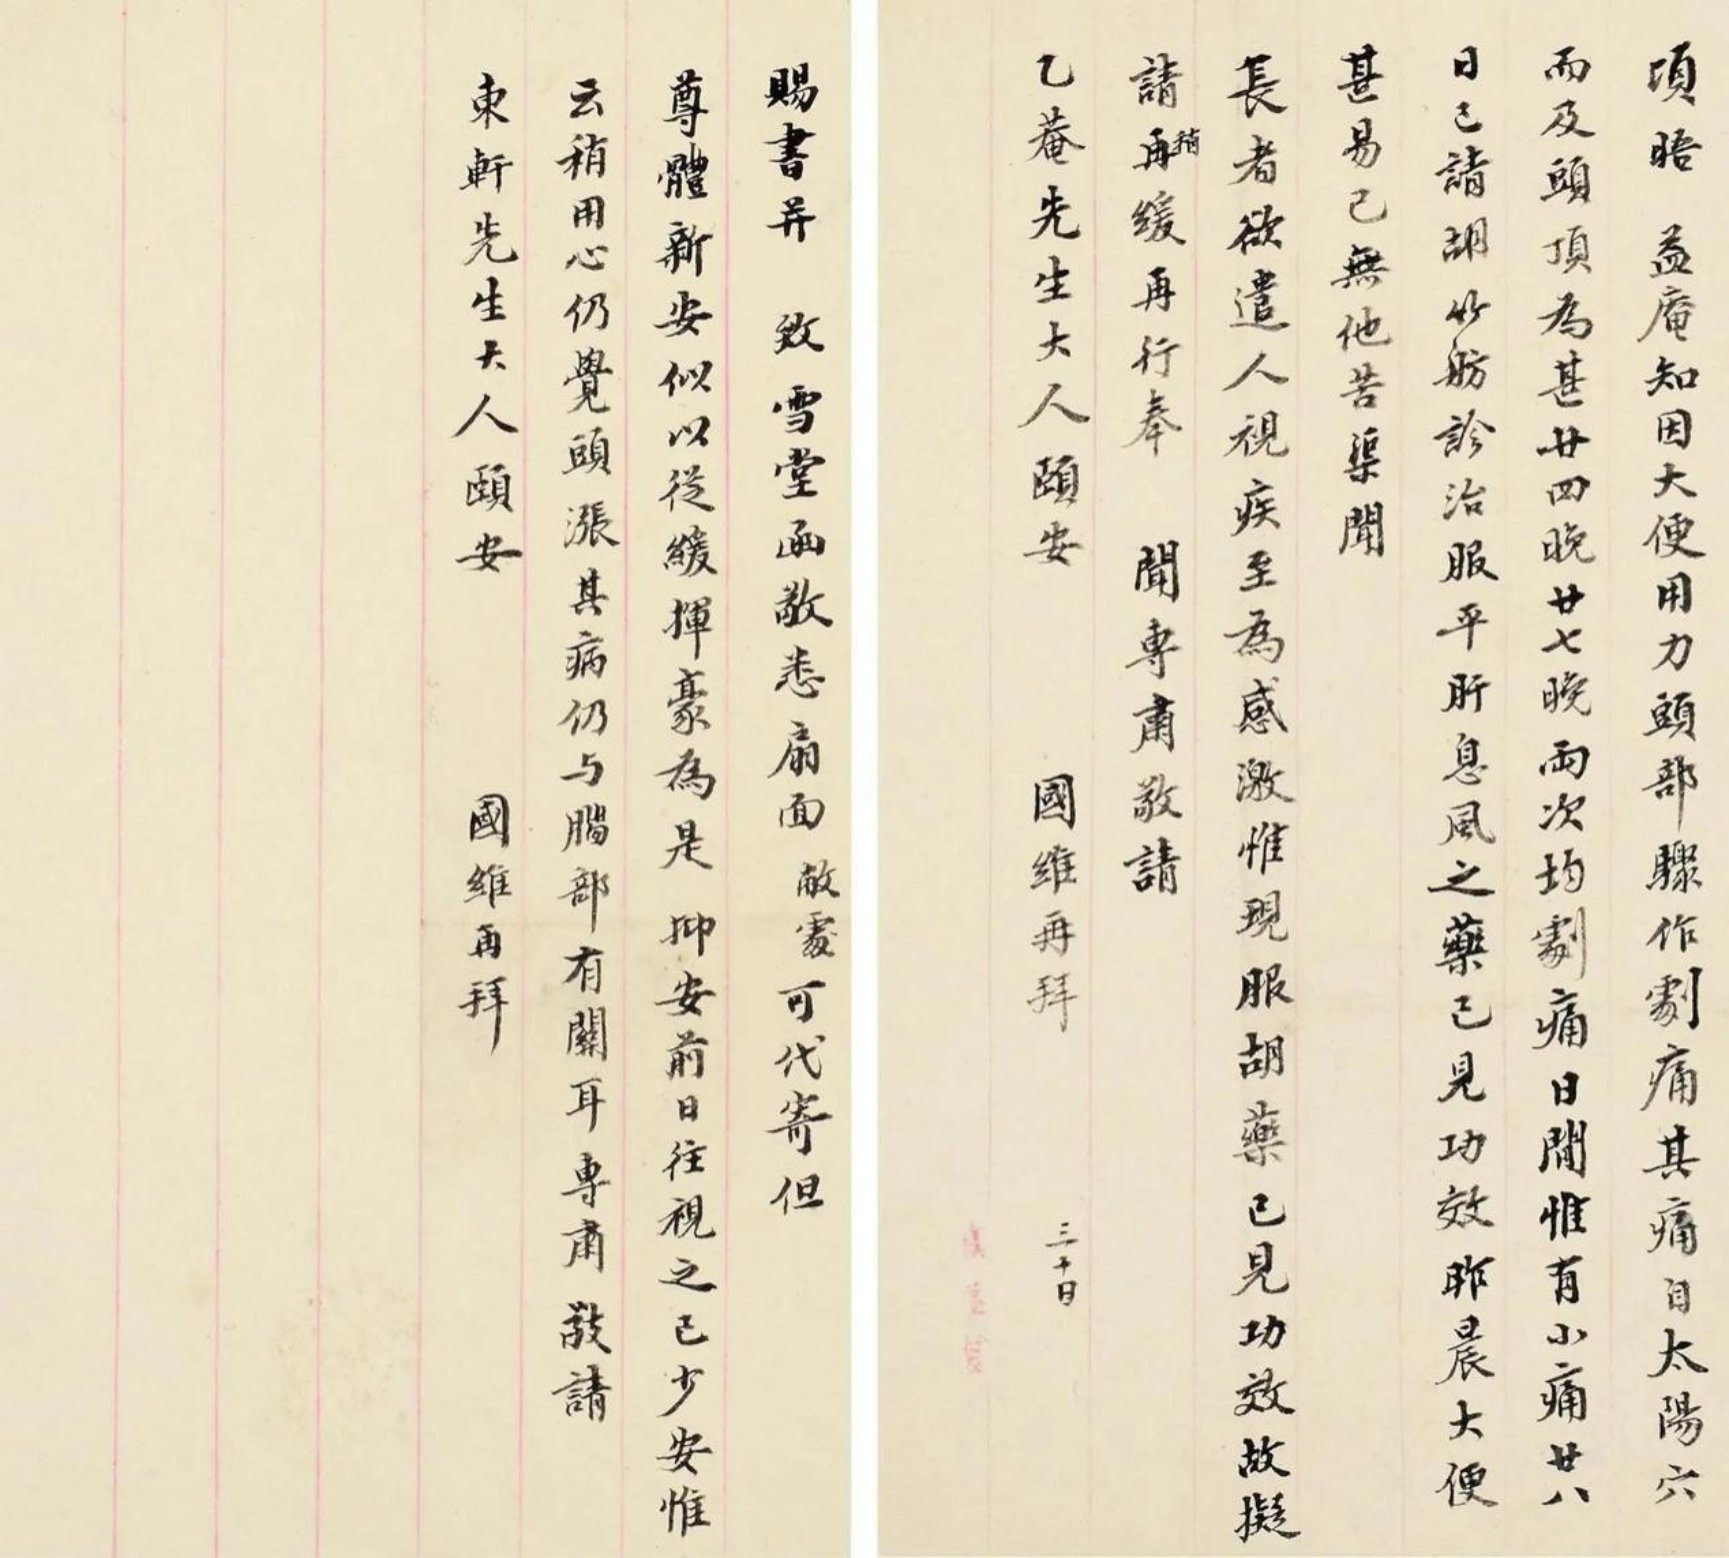 頃晤 益庵知因大便用力頭部驟作劇痛其痛自太陽穴
而及頭頂為甚廿四晚廿七晚兩次均劇痛日間惟有小痛廿八
日已請胡竹舫診治服平肝息風之藥已見功效昨晨大便
甚易已無他苦渠聞
長者欲遣人視疾至為感激惟現服胡藥已見功效故擬
請稍再緩再行奉 聞專肅敬請
乙菴先生大人頤安 國維再拜 三十日
賜書并 致雪堂函敬悉扇面敝處可代寄但
尊體新安似以從緩揮豪為是 抑安前日往視之已少安惟
云稍用心仍覺頭漲其病仍与腦部有關耳專肅敬請
東軒先生大人頤安 國維再拜